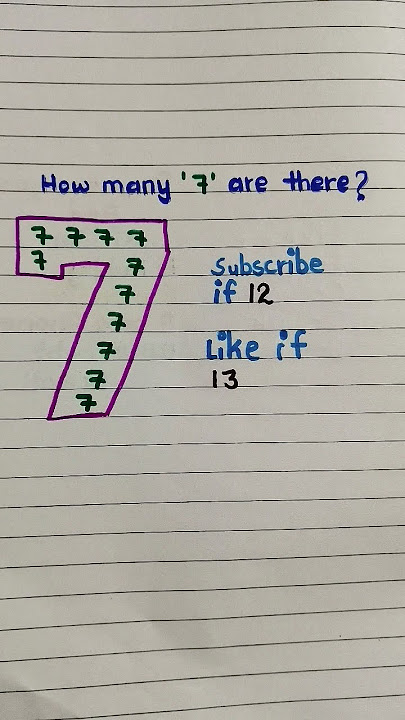 How many '7' are there?
7 7 7 7
7 7
7
7
7
7
7
Subscribe
if 12
Like if
13